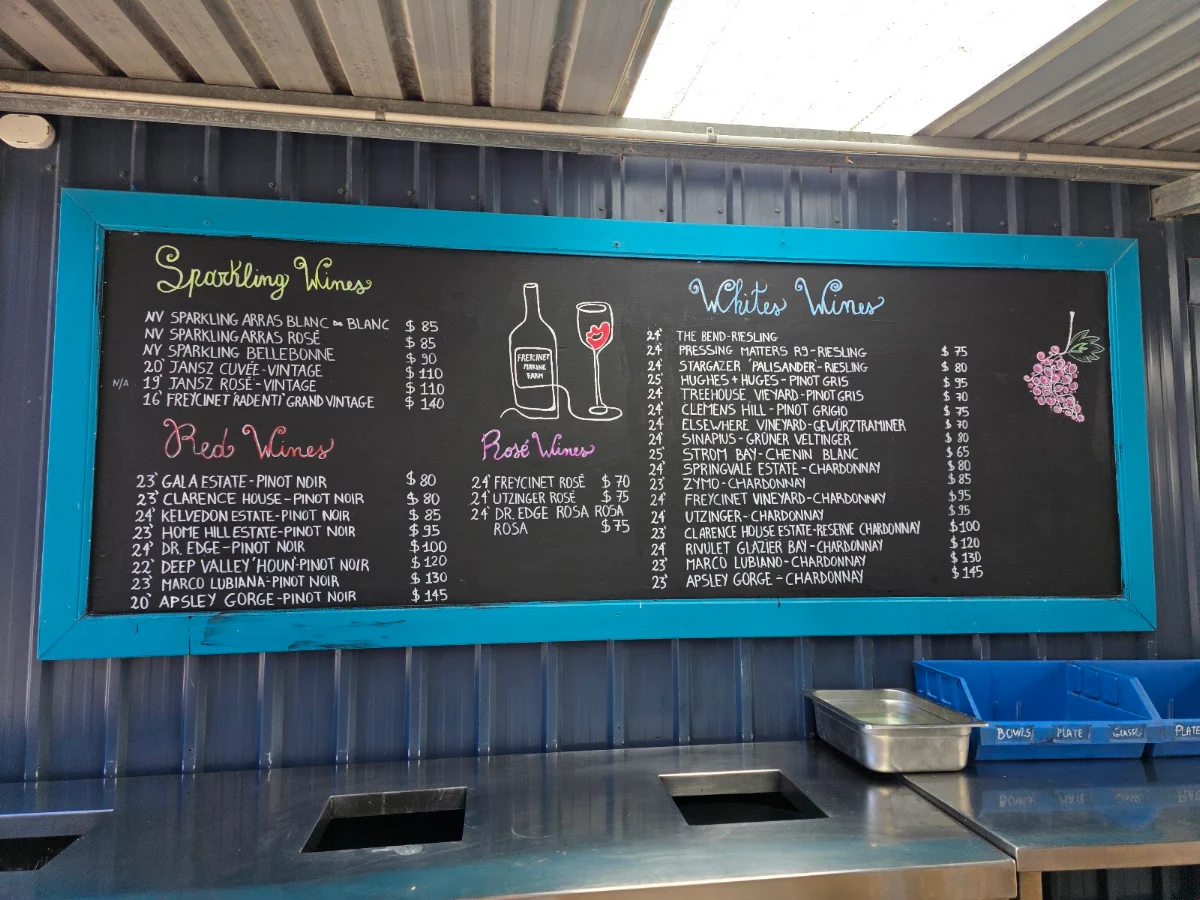 Sparkling Wines
NV SPARKLING ARRAS BLANC DE BLANC $ 85
NV SPARKLING ARRAS ROSÉ $ 85
NV SPARKLING BELLEBONNE $ 90
20' JANSZ CUVÉE - VINTAGE $ 110
N/A 19' JANSZ ROSÉ - VINTAGE $ 110
16' FREYCINET 'RADENTI' GRAND VINTAGE $ 140
Red Wines
23' GALA ESTATE - PINOT NOIR $ 80
23' CLARENCE HOUSE - PINOT NOIR $ 80
24' KELVEDON ESTATE - PINOT NOIR $ 85
23' HOME HILL ESTATE - PINOT NOIR $ 95
24' DR. EDGE - PINOT NOIR $ 100
22' DEEP VALLEY 'HOUN' - PINOT NOIR $ 120
23' MARCO LUBIANA - PINOT NOIR $ 130
20' APSLEY GORGE - PINOT NOIR $ 145
FREYCINET
MARINE
FARM
Rosé Wines
24' FREYCINET ROSÉ $ 70
24' UTZINGER ROSÉ $ 75
24' DR. EDGE ROSA ROSA
ROSA $ 75
Whites Wines
24' THE BEND - RIESLING
24' PRESSING MATTERS R9 - RIESLING $ 75
24' STARGAZER 'PALISANDER' - RIESLING $ 80
25' HUGHES + HUGES - PINOT GRIS $ 95
24' TREEHOUSE VIEYARD - PINOT GRIS $ 70
24' CLEMENS HILL - PINOT GRIGIO $ 75
24' ELSEWHERE VINEYARD - GEWÜRZTRAMINER $ 70
24' SINAPIUS - GRÜNER VELTINGER $ 80
25' STROM BAY - CHENIN BLANC $ 65
24' SPRINGVALE ESTATE - CHARDONNAY $ 80
23' ZYMO - CHARDONNAY $ 85
24' FREYCINET VINEYARD - CHARDONNAY $ 95
24' UTZINGER - CHARDONNAY $ 95
23' CLARENCE HOUSE ESTATE - RESERVE CHARDONNAY $ 100
24' RIVULET GLAZIER BAY - CHARDONNAY $ 120
23' MARCO LUBIANO - CHARDONNAY $ 130
23' APSLEY GORGE - CHARDONNAY $ 145
BOWLS PLATE GLASS PLATE